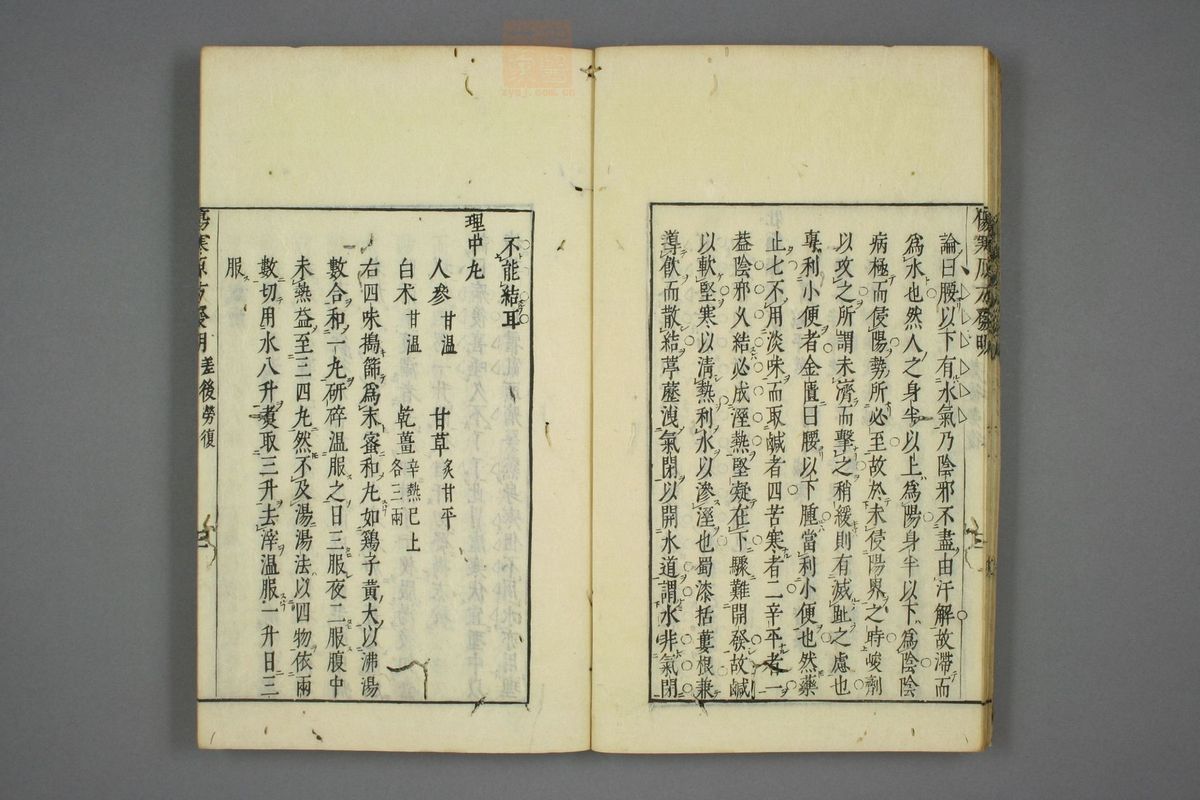 論曰腰以下有水氣乃陰邪不盡由汗解故滯而
爲水也然人之身半以上爲陽身半以下爲陰陰
病極而侵陽勢所必至故於未侵陽界之時峻劑
以攻之所謂未濟而擊之稍緩則有滅趾之慮也
專利小便者金匱曰腰以下腫當利小便也然藥
止七不用淡味而取鹹者四苦寒者二辛平者一
益陰邪乆結必成溼熱堅凝在下驟難開發故鹹
以軟堅寒以清熱利水以滲溼也蜀漆括蔞根兼
導飲而散結葶藶洩氣閉以開水道謂水非氣閉
不能結耳
理中丸
人參甘溫 甘草炙甘平
白朮甘溫 乾薑辛熱已上各三兩
右四味搗篩爲末蜜和丸如鶏子黃大以沸湯
數合和一丸研碎溫服之日三服夜二服腹中
未熱益至三四丸然不及湯湯法以四物依兩
數切用水八升煑取三升去滓溫服一升日三
服
差後勞復
zysj.com.cn